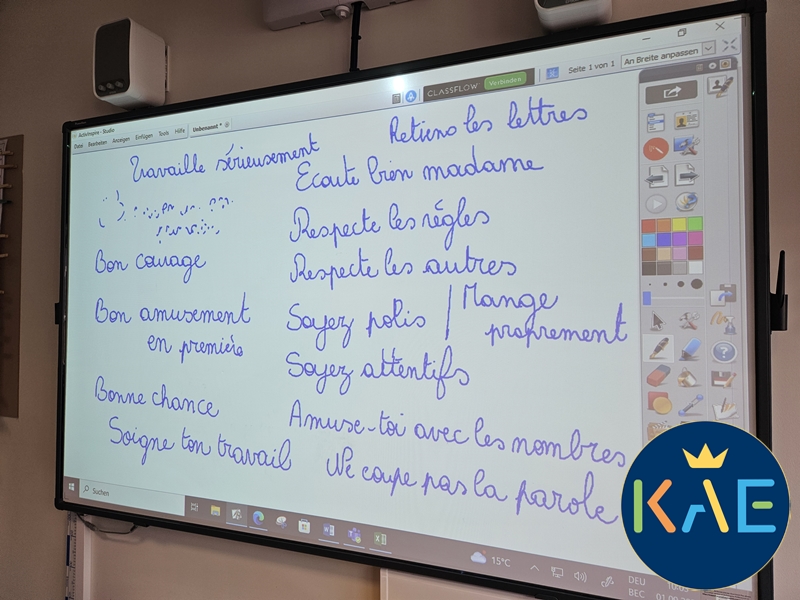 ActivInspire - Studio
Datei Bearbeiten Anzeigen Einfügen Tools Hilfe
Unbenannt *
CLASSFLOW Verbinden
Seite 1 von 1
An Breite anpassen
Travaille sérieusement
Retiens les lettres
Ecoute bien madame
Bon courage
Respecte les règles
Respecte les autres
Bon amusement
en première
Soyez polis / Mange
proprement
Soyez attentifs
Bonne chance
Soigne ton travail
Amuse-toi avec les nombres
Ne coupe pas la parole
Suchen
15°C
DEU
BEC
KAE